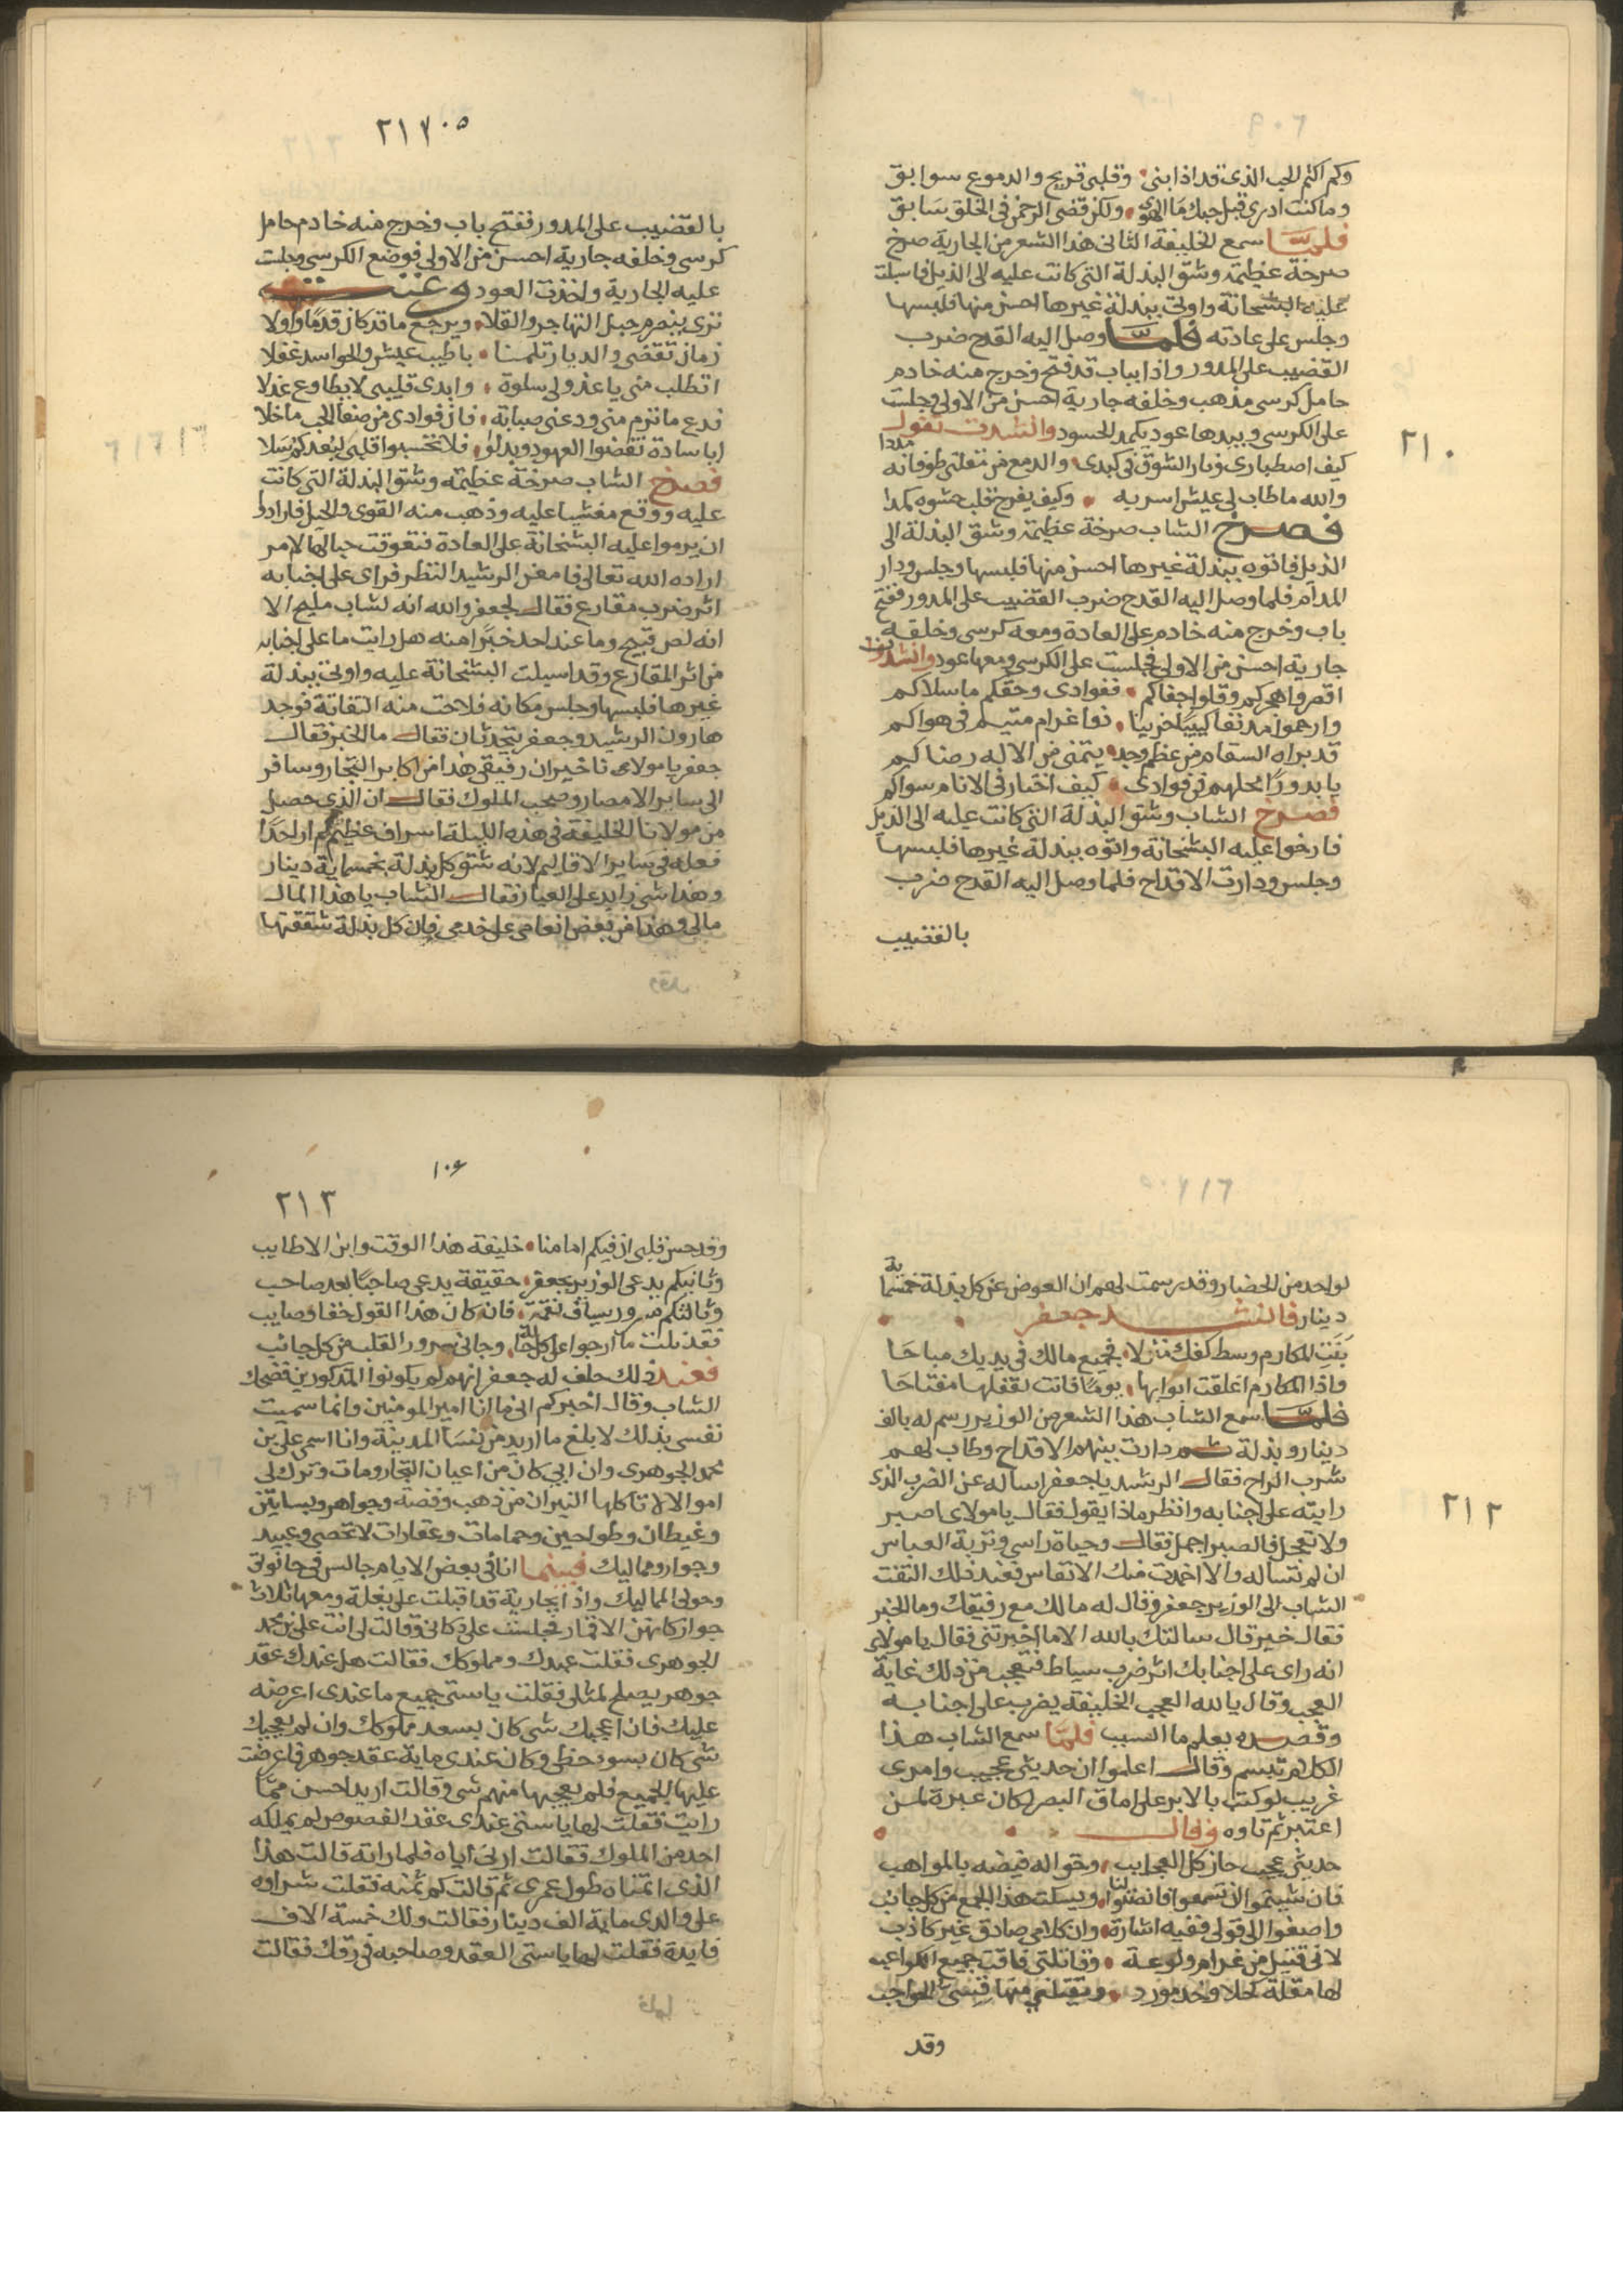 وكم اكتم الحب الذي قد اذابني • وقلبي قريح والدموع سوابق
وما كنت ادري قبل حبك ما الهوى • ولكن قضى الرحمن في الخلق سابق
فلما سمع الخليفة الثاني هذا الشعر من الجارية صرخ
صرخة عظيمة وشق البذلة التي كانت عليه الى الذيل فاسبلت
عليه البشخانة واوتي ببذلة غيرها احسن منها فلبسها
وجلس على عادته فلما وصل اليه القدح ضرب
القضيب على المدور واذا بباب قد فتح وخرج منه خادم
حامل كرسي مذهب وخلفه جارية احسن من الاولى وجلست
على الكرسي وبيدها عود يكمد الحسود وانشدت تقول
٢١٠
كيف اصطباري ونار الشوق في كبدي • والدمع من مقلتي طوفانه مددا
والله ما طاب لي عيش اسر به • وكيف يفرح قلب حشوه كمدا
فصرخ الشاب صرخة عظيمة وشق البذلة الى
الذيل فاتوه ببذلة غيرها احسن منها فلبسها وجلس ودار
المدام فلما وصل اليه القدح ضرب القضيب على المدور ففتح
باب وخرج منه خادم على العادة ومعه كرسي وخلفه
جارية احسن من الاولى فجلست على الكرسي ومعها عود وانشدت
اقصروا هجركم وقلوا جفاكم • ففوادي وحقكم ما سلاكم
وارحموا مدنفا كييبا حزينا • ذوا غرام متيم في هواكم
قد براه السقام من عظم وجد • يتمنى من الاله رضاكم
يا بدورا محلهم في فوادي • كيف اختار في الانام سواكم
فصرخ الشاب وشق البذلة التي كانت عليه الى الذيل
فارخوا عليه البشخانة واتوه ببذلة غيرها فلبسها
وجلس ودارت الاقداح فلما وصل اليه القدح ضرب
بالقضيب
بالقضيب على المدور ففتح باب وخرج منه خادم حامل
كرسي وخلفه جارية احسن من الاولى فوضع الكرسي وجلست
عليه الجارية واخذت العود وغنت
ترى ينصرم حبل التهاجر والقلا • ويرجع ما قد كان قدما واولا
زمان تقضى والديار تلمنا • باطيب عيش والحواسد غفلا
اتطلب مني يا عذولي سلوة • وابدى قليبي لا يطاوع عذلا
فدع ما تروم مني ودعني صبابة • فان فوادي من صفا الحب ما خلا
ايا سادة نقضوا العهود وبدلوا • فلا تحسبوا قلبي لبعدكم سلا
فصرخ الشاب صرخة عظيمة وشق البذلة التي كانت
عليه ووقع مغشيا عليه وذهب منه القوى والحيل فارادوا
ان يرموا عليه البشخانة على العادة فتعوقت حبالها لامر
اراده الله تعالى فامعن الرشيد النظر فراى على اجنابه
اثر ضرب مقارع فقال لجعفر والله انه لشاب مليح الا
انه لص قبيح وما عند احد خبرا منه هل رايت ما على اجنابه
من اثر المقارع وقد اسبلت البشخانة عليه واوتي ببذلة
غيرها فلبسها وجلس مكانه فلاحت منه التفاتة فوجد
هارون الرشيد وجعفر يتحدثان فقال ما الخبر فقال
جعفر يا مولاى خير ان رفيقي هذا من اكابر التجار وسافر
الى ساير الامصار وصحب الملوك فقال ان الذي حصل
من مولانا الخليفة في هذه الليلة اسراف عظيم لم ار احدا
فعله في ساير الاقاليم لانه شق كل بذلة بخمسماية دينار
وهذا شي زايد على العيار فقال الشاب يا هذا المال
مالي وهذا من بعض انعامي على خدمي فان كل بذلة شققتها
لواحد من الحضار وقد رسمت لهم ان العوض عن كل بذلة خمسماية
دينار فانشد جعفر
بنت المكارم وسط كفك منزلا • فجميع مالك في يديك مباحا
واذا المكارم اغلقت ابوابها • يوما فانت لقفلها مفتاحا
فلما سمع الشاب هذا الشعر من الوزير رسم له بالف
دينار وبذلة ثم دارت بينهم الاقداح وطاب لهم
شرب الراح فقال الرشيد يا جعفر اساله عن الضرب الذي
رايته على اجنابه وانظر ماذا يقول فقال يا مولاى اصبر
٢١٢
ولا تعجل فالصبر اجمل فقال وحياة راسي وتربة العباس
ان لم تساله والا اخمدت منك الانفاس فعند ذلك التفت
الشاب الى الوزير جعفر وقال له مالك مع رفيقك وما الخبر
فقال خير قال سالتك بالله الا ما اخبرتني فقال يا مولاى
انه راى على اجنابك اثر ضرب سياط فتعجب من ذلك غاية
العجب وقال يالله العجب الخليفة يضرب على اجنابه
وقصده يعلم ما السبب فلما سمع الشاب هذا
الكلام تبسم وقال اعلموا ان حديثي عجيب وامري
غريب لو كتب بالابر على اماق البصر لكان عبرة لمن
اعتبر ثم تاوه وقال
حديثي عجيب حاز كل العجايب
فان شيتموا ان تسمعوا فانصتوا لنا • ويسكت هذا الجمع من كل جانب
واصغوا الى قولي ففيه اشارة • وان كلامي صادق غير كاذب
لاني قتيل من غرام ولوعة • وقاتلتي فاقت جميع الكواعب
لها مقلة كحلا وخد مورد
وقد
١٠٦
٢١٣
وقد حس قلبي ان فيكم امامنا • خليفة هذا الوقت وابن الاطايب
وثانيكم يدعى الوزير بجعفر • حقيقة يدعى صاحبا بعد صاحب
وثالثكم مسرور سياف نقمة • فان كان هذا القول حقا وصايب
فقد نلت ما ارجوا على كل حالة • وجاني سرور القلب من كل جانب
فعند ذلك حلف له جعفر انهم لم يكونوا المذكورين فضحك
الشاب وقال اخبركم اني ما انا امير المومنين وانما سميت
نفسي بذلك لابلغ ما اريد من نسا المدينة وانا اسمي علي بن
محمد الجوهري وان ابي كان من اعيان التجار ومات وترك لي
اموالا لا تاكلها النيران من ذهب وفضة وجواهر وبساتين
وغيطان وطواحين وحمامات وعقارات لا تحصى وعبيد
وجوار ومماليك فبينما انا في بعض الايام جالس في حانوتي
وحولي المماليك واذا بجارية قد اقبلت على بغلة ومعها ثلاث
جوار كانهن الاقمار فجلست على دكاني وقالت لي انت علي بن محمد
الجوهري فقلت عبدك ومملوكك فقالت هل عندك عقد
جوهر يصلح لمثلي فقلت يا ستي جميع ما عندي اعرضه
عليك فان اعجبك شي كان بسعد مملوكك وان لم يعجبك
شي كان بسو حظي وكان عندي ماية عقد جوهر فاعرضت
عليها الجميع فلم يعجبها منهم شي وقالت اريد احسن مما
رايت فقلت لها يا ستي عندي عقد الفصوص لم يملكه
احد من الملوك فقالت ارني اياه فلما راته قالت هذا
الذي اتمناه طول عمري ثم قالت كم ثمنه فقلت شراوه
على والدي ماية الف دينار فقالت ولك خمسة الاف
فايدة فقلت لها يا ستي العقد وصاحبه في رقك فقالت